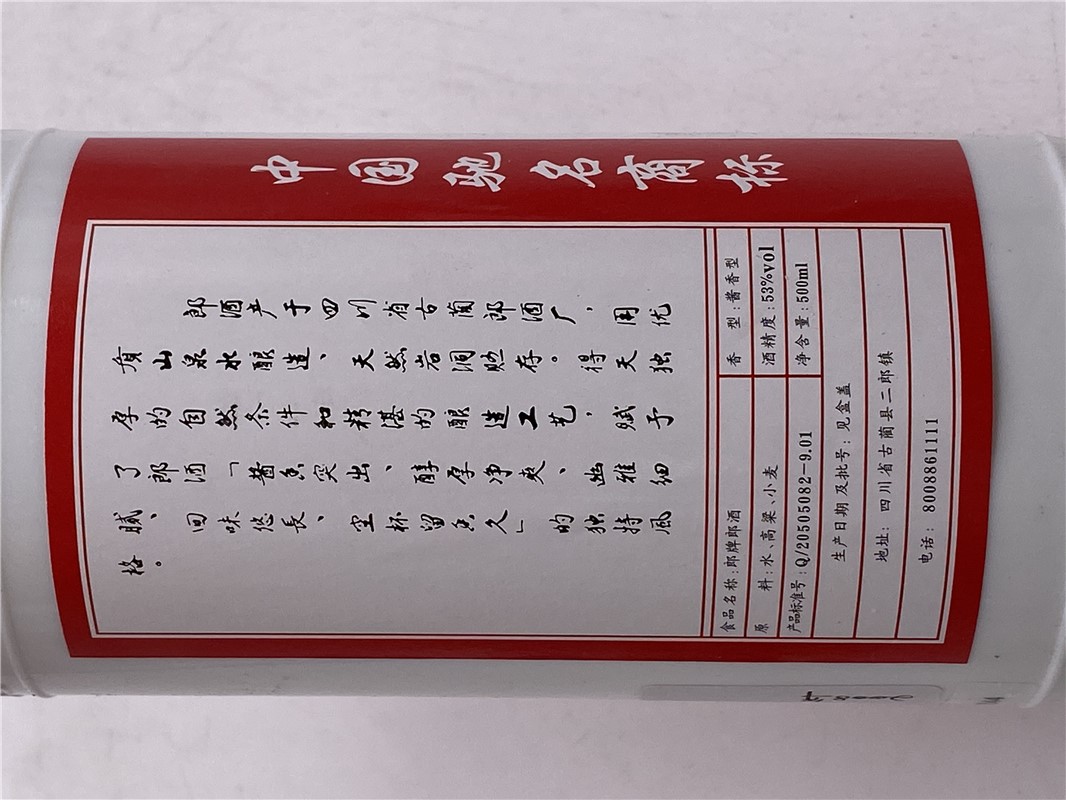 中国驰名商标
郎酒产于四川省古蔺郎酒厂，用优
质山泉水酿造、天然岩洞贮存。得天独
厚的自然条件和精湛的酿造工艺，赋予
了郎酒「酱香突出、醇厚净爽、幽雅细
腻、回味悠長、空杯留香久」的独特风
格。
食品名称：郎牌郎酒
香 型：酱香型
原 料：水、高粱、小麦
酒精度：53%vol
产品标准号：Q/20505082-9.01
净含量：500ml
生产日期及批号：见盒盖
地址：四川省古蔺县二郎镇
电话：8008861111